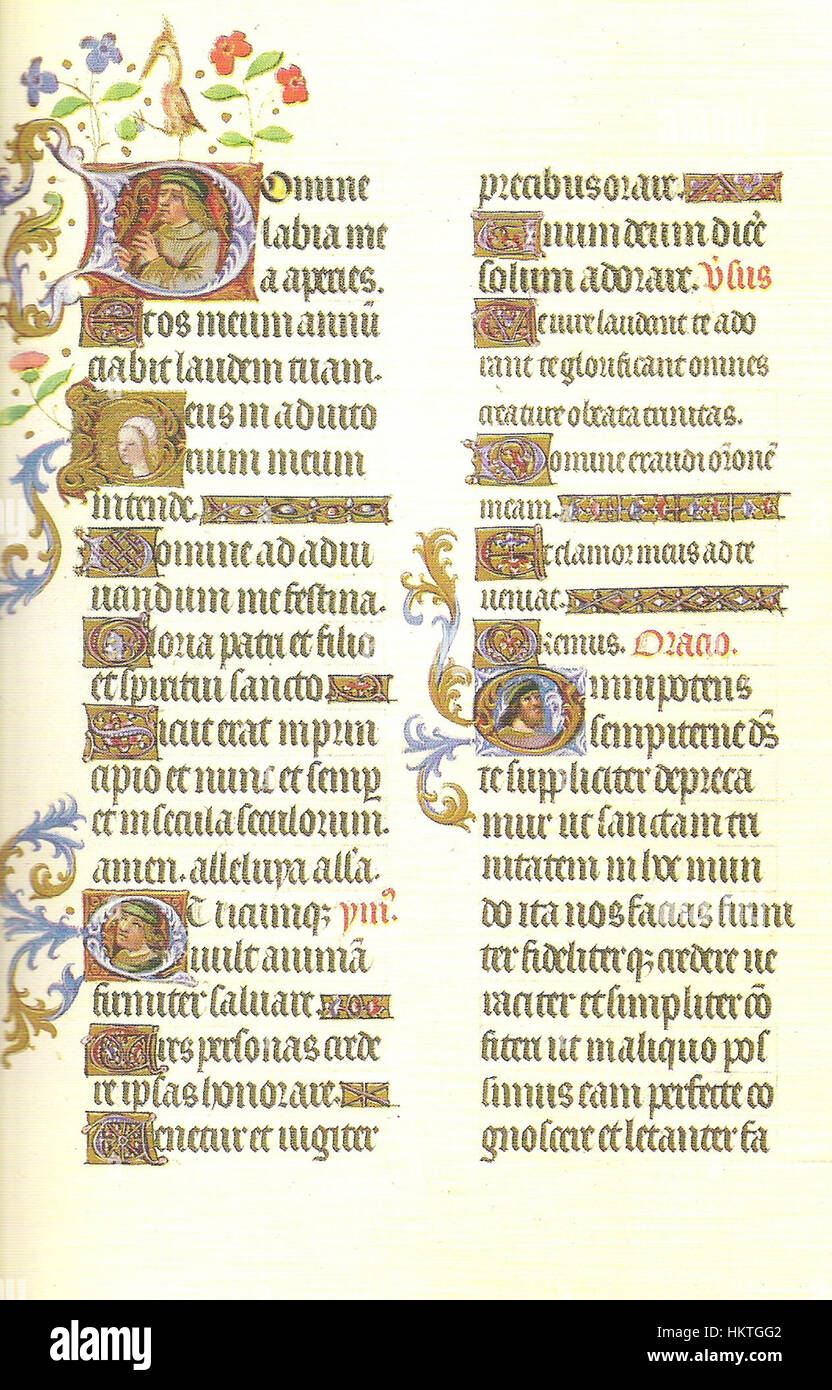 Domine
labia me
a aperies.
Et os meum annū
ciabit laudem tuam.
Deus in adiuto
rium meum
intende.
Domine ad adiu
uandum me festina.
Gloria patri et filio
et spiritui sancto.
Sicut erat in prin
cipio et nunc et semp
et in secula seculorum.
amen. alleluya alła.
Quicumqꝫ ymꝰ.
uult animā
firmiter saluare.
Tres personas crede
re ipsas honorare.
Tenetur et iugiter
precibus orare.
Unum deum dicē
solum adorare. Vsus
Te iure laudant te ado
rant te glorificant omnes
creature o beata trinitas.
Domine exaudi orōnē
meam.
Et clamor meus ad te
ueniat.
Oremus. Oracio.
Omnipotens
sempiterne ds̄
te suppliciter depreca
mur ut sanctam tri
nitatem in hoc mun
do ita nos facias firmi
ter fideliterqꝫ credere ue
raciter et simpliter cō
fiteri ut in aliquo pos
simus eam perfecte co
gnoscere et letanter fa
alamy
Image ID: HKTGG2
www.alamy.com